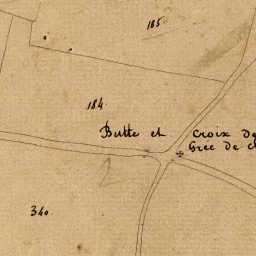 185
184
Butte et Croix de
Grée de
340